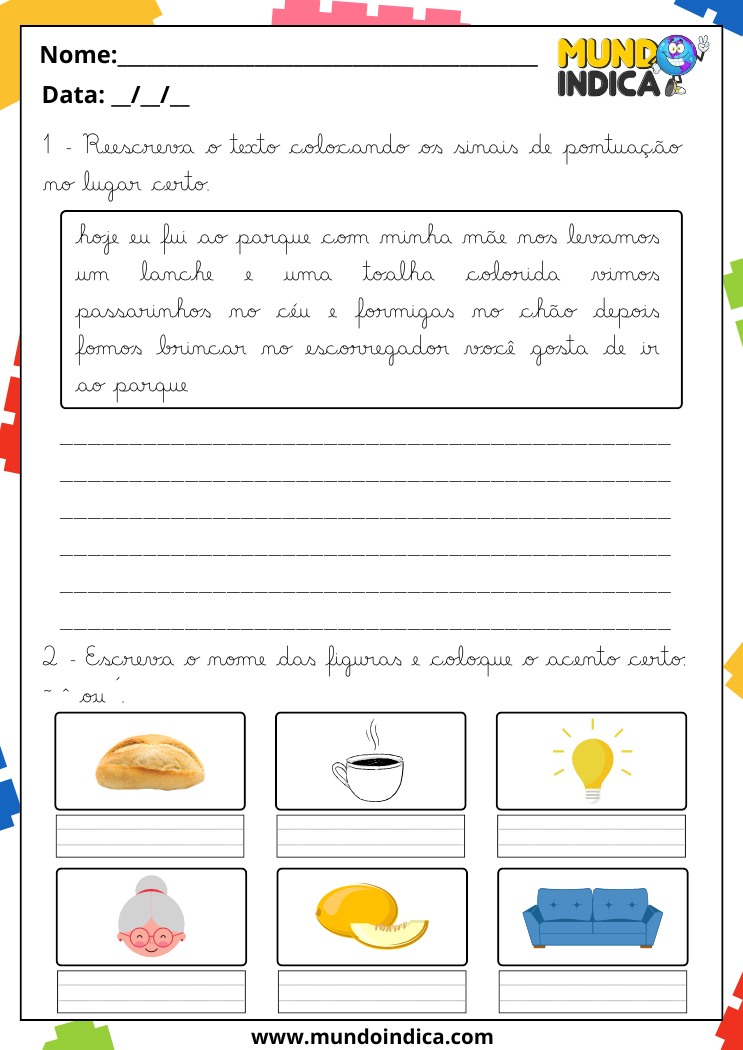 Nome:___________________________________
MUNDO
INDICA
Data: __/__/__
1 - Reescreva o texto colocando os sinais de pontuação
no lugar certo.
hoje eu fui ao parque com minha mãe nos levamos
um lanche e uma toalha colorida vimos
passarinhos no céu e formigas no chão depois
fomos brincar no escorregador você gosta de ir
ao parque
2 - Escreva o nome das figuras e coloque o acento certo:
~ ^ ou ´.
www.mundoindica.com